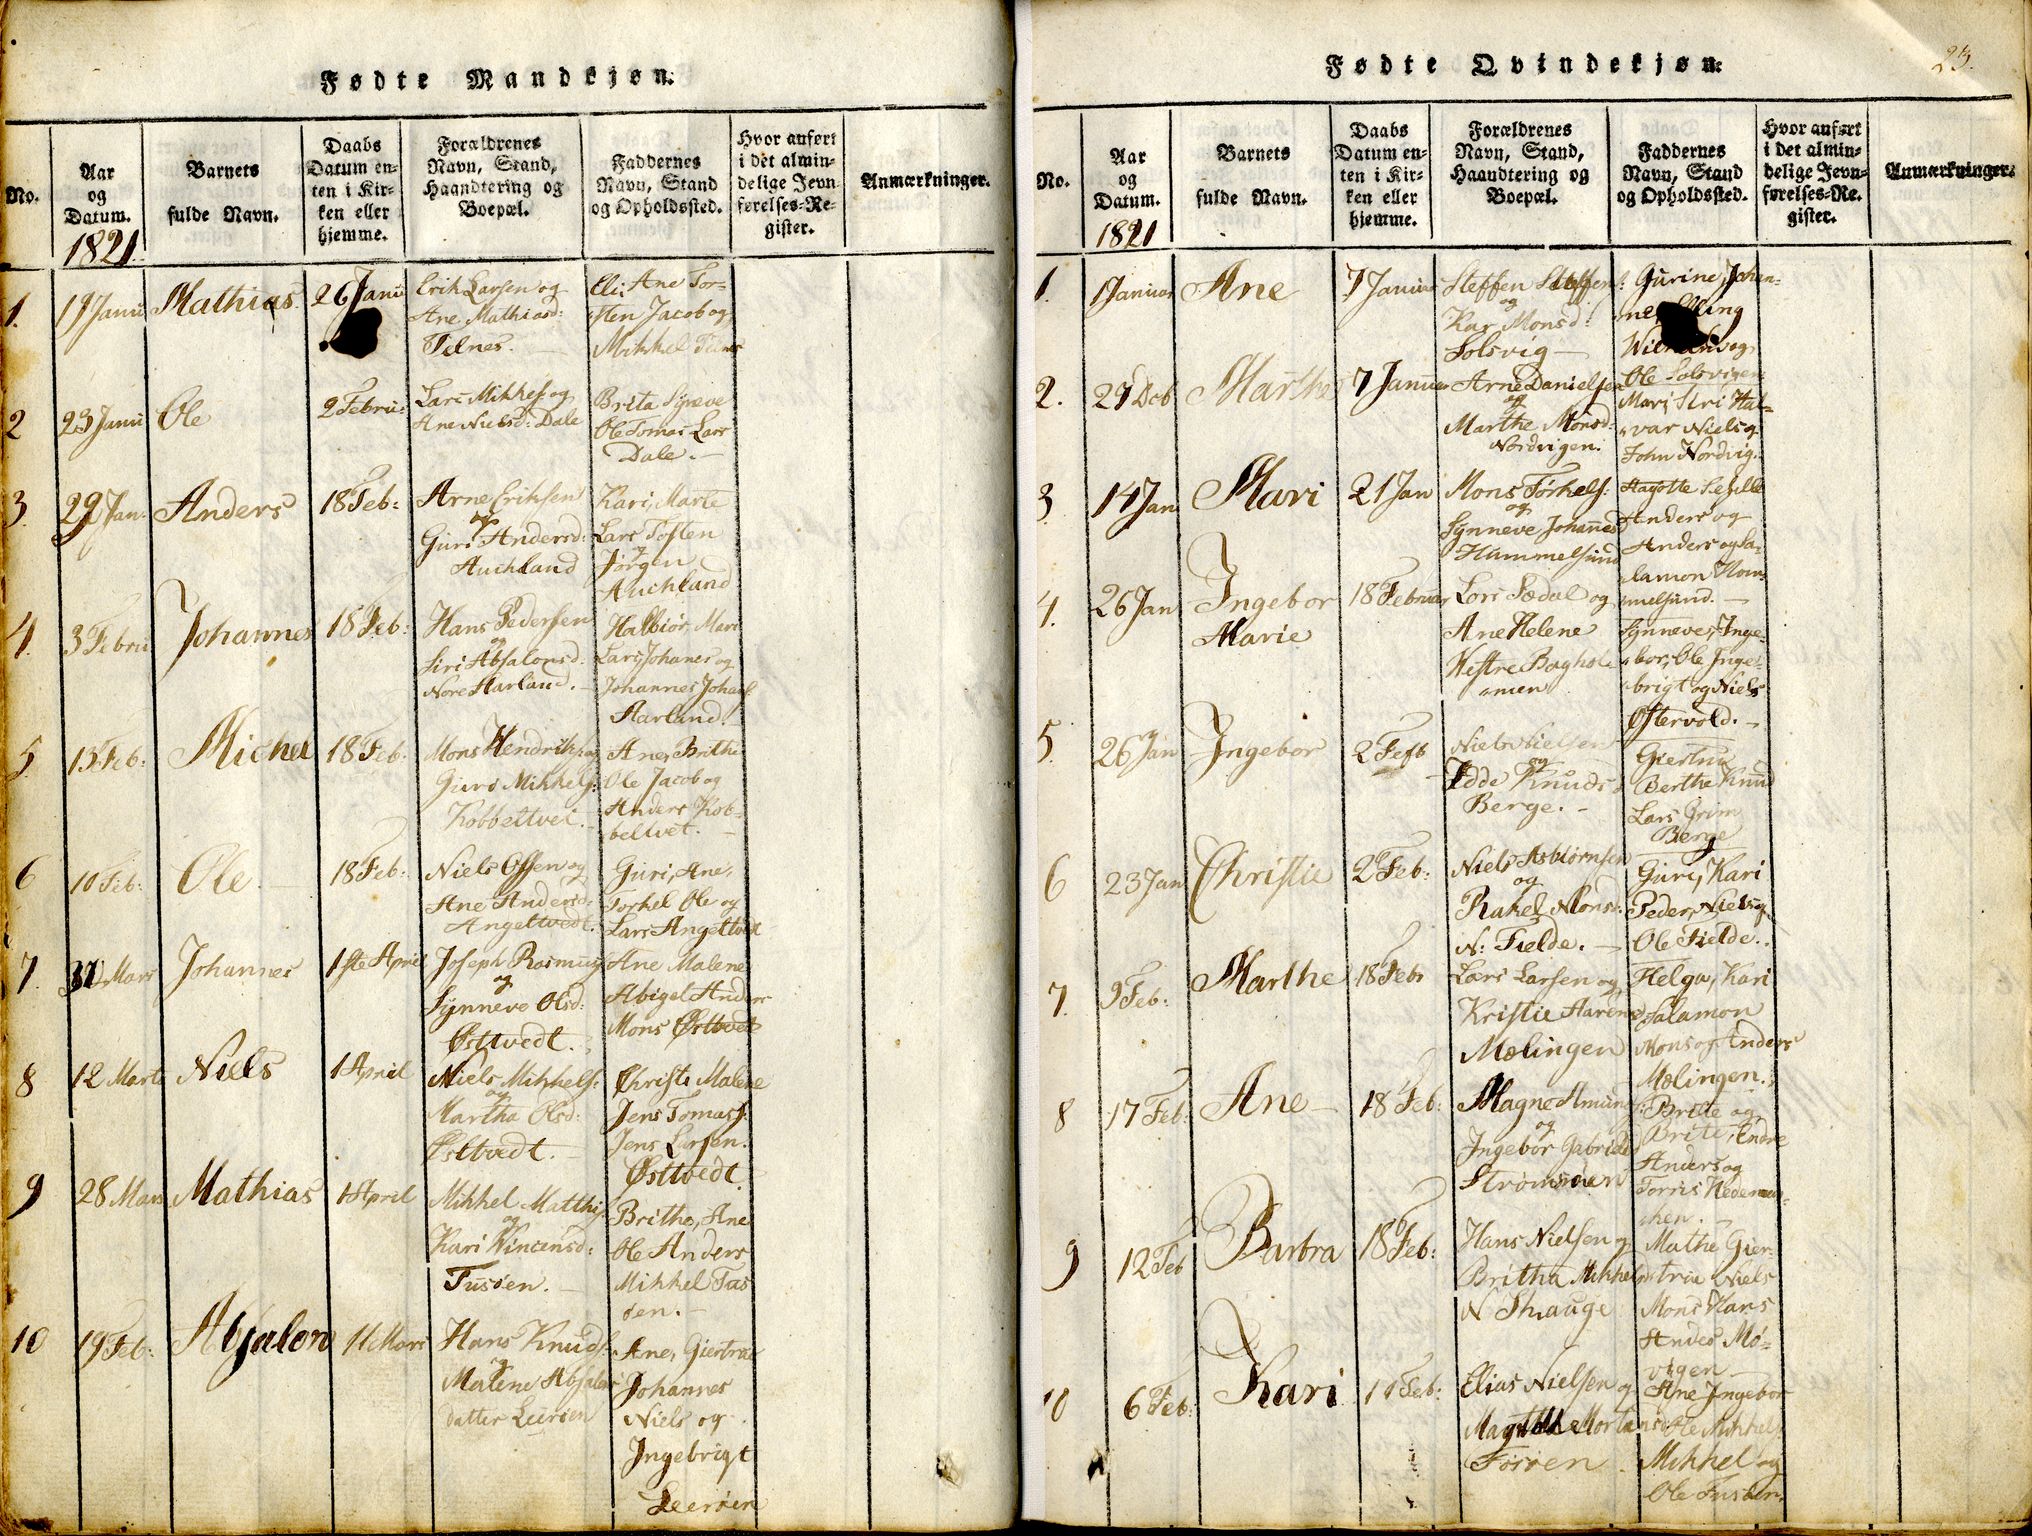 Fødte Mandkjøn.
No.
Aar
og
Datum.
1821.
Barnets
fulde Navn.
Daabs
Datum en-
ten i Kir-
ken eller
hjemme.
Forældrenes
Navn, Stand,
Haandtering og
Boepæl.
Faddernes
Navn, Stand
og Opholdssted.
Hvor anført
i det almin-
delige Jevn-
førelses-Re-
gister.
Anmærkninger.
1. 17 Janu Mathias. 26 Janu
Erik Larsen og
Ane Mathiasd:
Telnes.
Eli, Ane Tor-
sten Jacob og
Mikkel Telnes
2 23 Janu Ole 2 Febru:
Lars Mikkels og
Ane Nielsd: Dale
Brita Syneve
Ole Tomas Lars
Dale.
3. 29 Jan: Anders 18 Feb:
Arne Eriksen
og
Guri Andersd:
Auckland
Kari, Marte
Lars Tosten
og
Jørgen
Auckland
4. 3 Febru Johannes 18 Feb:
Hans Pedersen
og
Siri Absalonsd:
Nore Harland.
Halbior, Mari
Lars, Johanes og
Johannes Johans
Harland.
5. 13 Feb: Michel 18 Feb:
Mons Hendriks og
Guro Mikkels:
Kobbeltvet.
Ane, Brithe
Ole Jacob og
Anders Kob-
beltvet.
6 10 Feb: Ole. 18 Feb:
Niels Olsen og
Ane Andersd:
Angeltvedt.
Guri, Ane,
Torkel Ole og
Lars Angeltvedt
7. Mars Johannes 1ste April
Joseph Rasmus
og
Synneve Olsd:
Østtvedt.
Ane Malene
Abigel Anders
Mons Østtvedt
8 12 Marts Niels 1 April
Niels Mikkels:
og
Martha Olsd:
Østtvedt.
Christi Malene
Jens Tomas
Jens Larsen.
Østtvedt
9 28 Mars Mathias 1 April
Mikkel Matthis
og
Kari Vincensd:
Tusøen.
Brithe, Ane
Ole Anders
Mikkel Tus
øen.
10 19 Feb: Absalon 11 Mars
Hans Knuds:
og
Malene Absalons
datter Leerøen
Ane, Giertrue
Johannes
Niels og
Ingebrigt
Leerøen
Fødte Qvindekjøn.
23.
No.
Aar
og
Datum.
1821
Barnets
fulde Navn.
Daabs
Datum en-
ten i Kir-
ken eller
hjemme.
Forældrenes
Navn, Stand,
Haandtering og
Boepæl.
Faddernes
Navn, Stand
og Opholdssted.
Hvor anført
i det almin-
delige Jevn-
førelses-Re-
gister.
Anmærkninger.
1. 1 Januar Ane 7 Januar
Steffen Steffens:
og
Kar Monsd:
Solsvig
Gurine, Johan-
ne,
og
Ole Solsvigen
2. 29 Dcb Marthe 7 Januar
Arne Danielsen
og
Marthe Monsd:
Nordvigen.
Mari, Siri Hal-
var Niels og
John Nordvig.
3 14 Jan Mari 21 Jan
Mons Torkels:
og
Synneve Johannes
Hummelsund
Sesille
Anders og
Anders og Sa-
lamon Hom-
melsund.
4. 26 Jan Ingebor
Marie
18 Februar
Lars Sædal og
Ane Helene
Vestre Bagholm
men
Synneve, Inge-
bor, Ole Inge-
brigt og Niels
Østervold.
5. 26 Jan Ingebor 2 Feb
Niels Nielsen
og
Edde Knuds
Berge.
Giertru
Berthe Knud
Lars Grim
Berge
6 23 Jan Christie 2 Feb:
Niels Asbiørnsen
og
Rakel Monsd:
N: Fielde.
Guri, Kari
Peder, Niels og
Ole Fielde.
7. 9 Feb: Marthe 18 Feb
Lars Larsen og
Kristie Aarens
Mølingen
Helga, Kari
Salamon
Mons og Anders
Mølingen.
8 17 Feb: Ane 18 Feb:
Magne Amun
og
Ingebor Gabriels
Strømsøen
Brite og
Brite, Endre
Anders og
Torris Hedemar-
ken.
9 12 Feb Barbra 18 Feb:
Hans Nielsen og
Britha Mikkels
N Skauge
Mathe Gier-
true Niels
Mons Hans
Andes Mø-
vigen
10 6 Feb: Kari 11 Feb:
Elias Nielsen og
Mortens
Forøen
Ane Ingebor
Ole Mikkels
Mikkel og
Ole Tusøen.